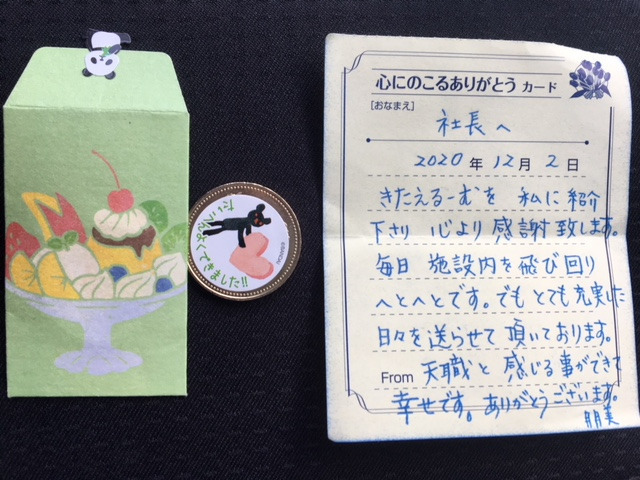 心にのこるありがとう カード
[おなまえ]
社長へ
2020 年 12 月 2 日
きたえるーむを 私に紹介
下さり 心より 感謝致します。
毎日 施設内を飛び回り
へとへとです。でもとても充実した
日々を送らせて頂いております。
From 天職と感じる事ができて
幸せです。ありがとうございます。
朋美
たいへんよくできました!!